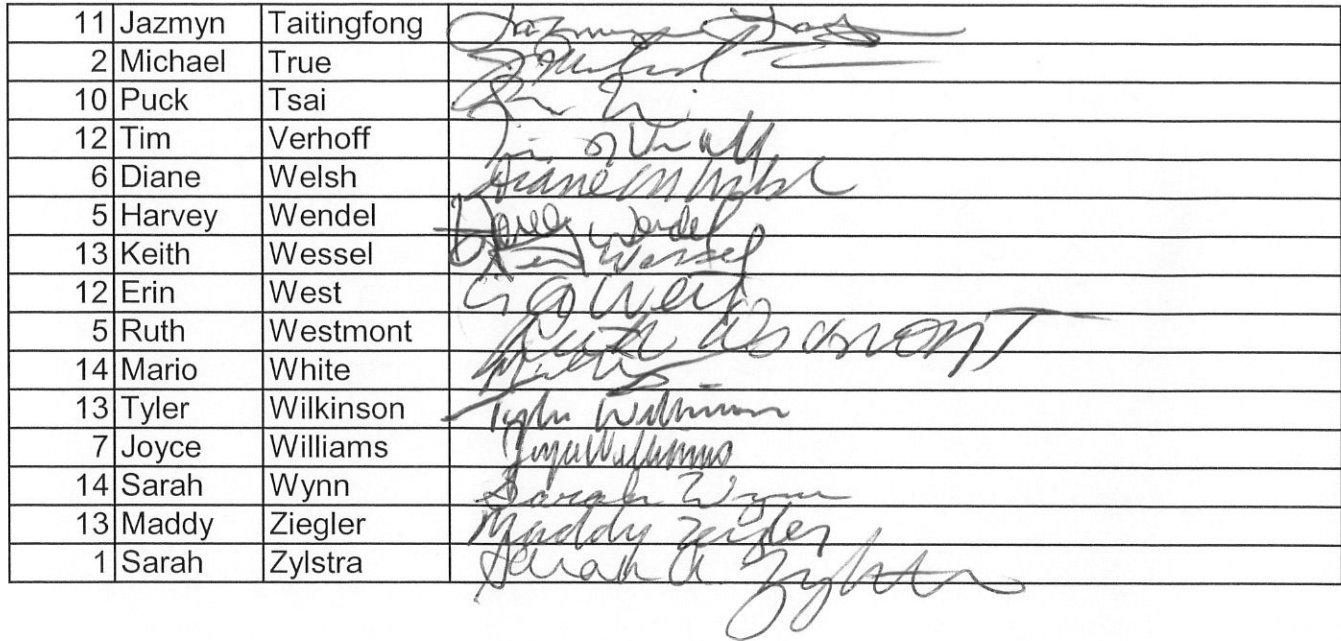 11 Jazmyn Taitingfong
2 Michael True
10 Puck Tsai
12 Tim Verhoff
6 Diane Welsh Diane M
5 Harvey Wendel Wendel
13 Keith Wessel Wessel
12 Erin West West
5 Ruth Westmont Ruth
14 Mario White
13 Tyler Wilkinson Tyler
7 Joyce Williams Joyce Williams
14 Sarah Wynn Sarah Wynn
13 Maddy Ziegler Maddy
1 Sarah Zylstra Sarah A Zylstra